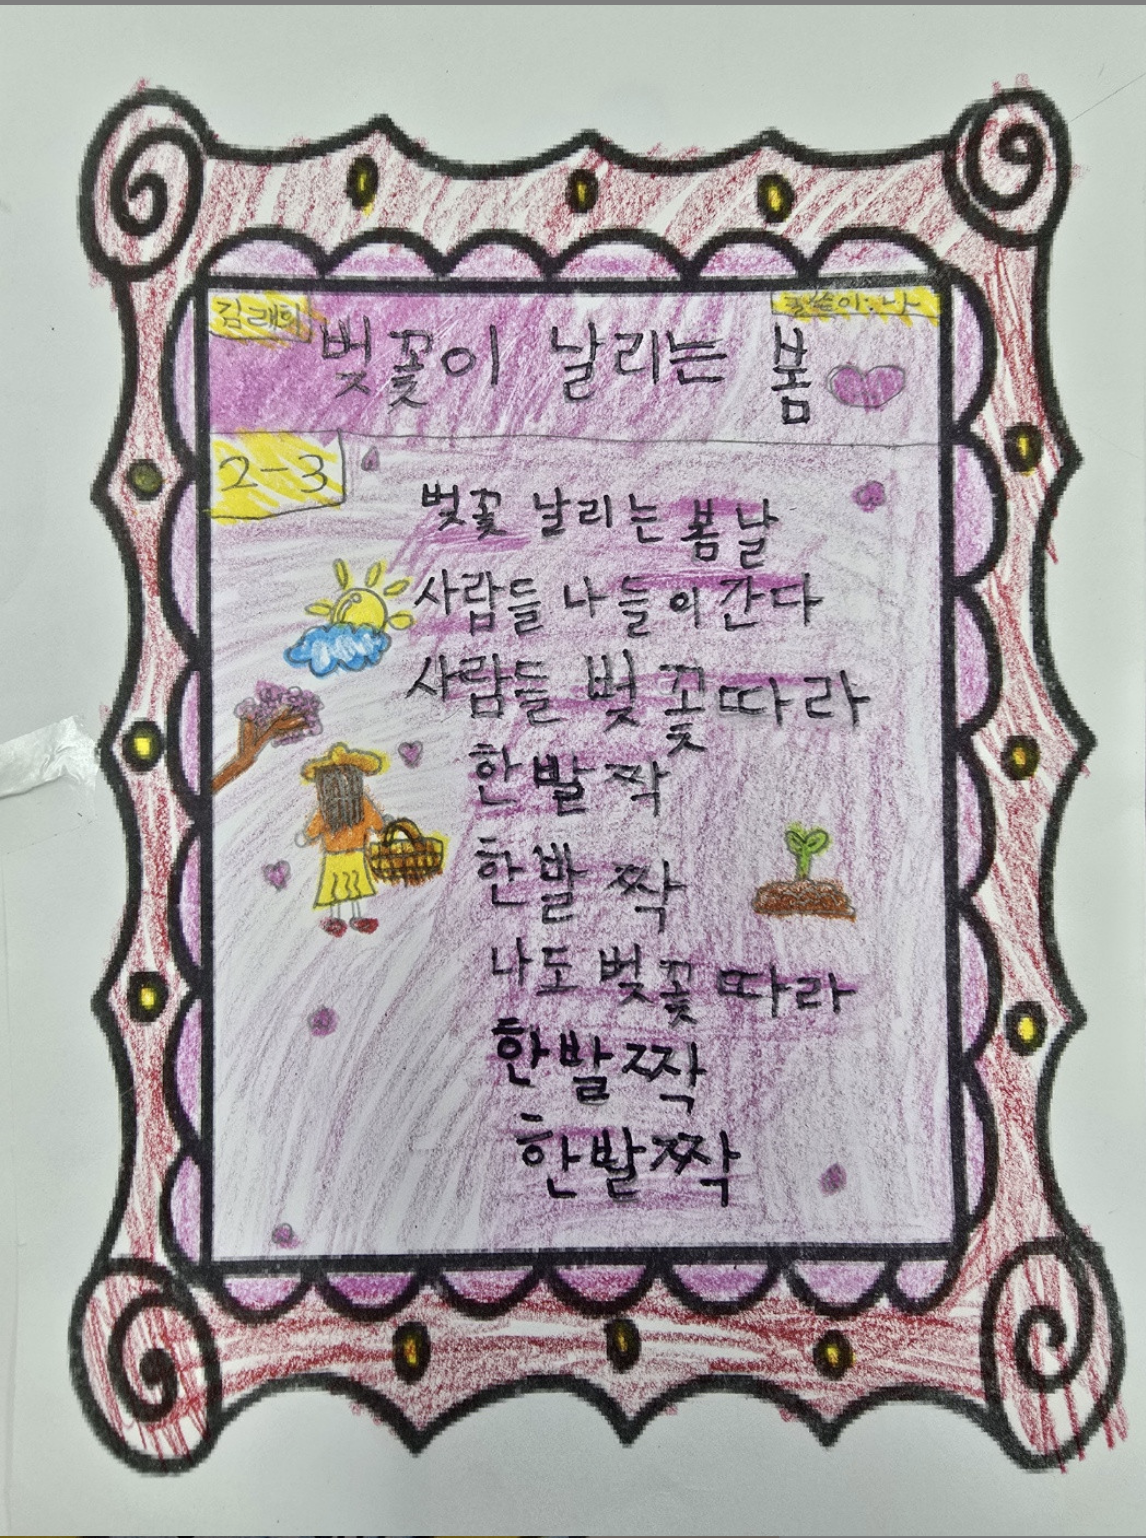 김래희
벚꽃이 날리는 봄
2-3
벚꽃 날리는 봄날
사람들 나들이간다
사람들 벚꽃따라
한발짝
한발짝
나도 벚꽃 따라
한발짝
한발짝